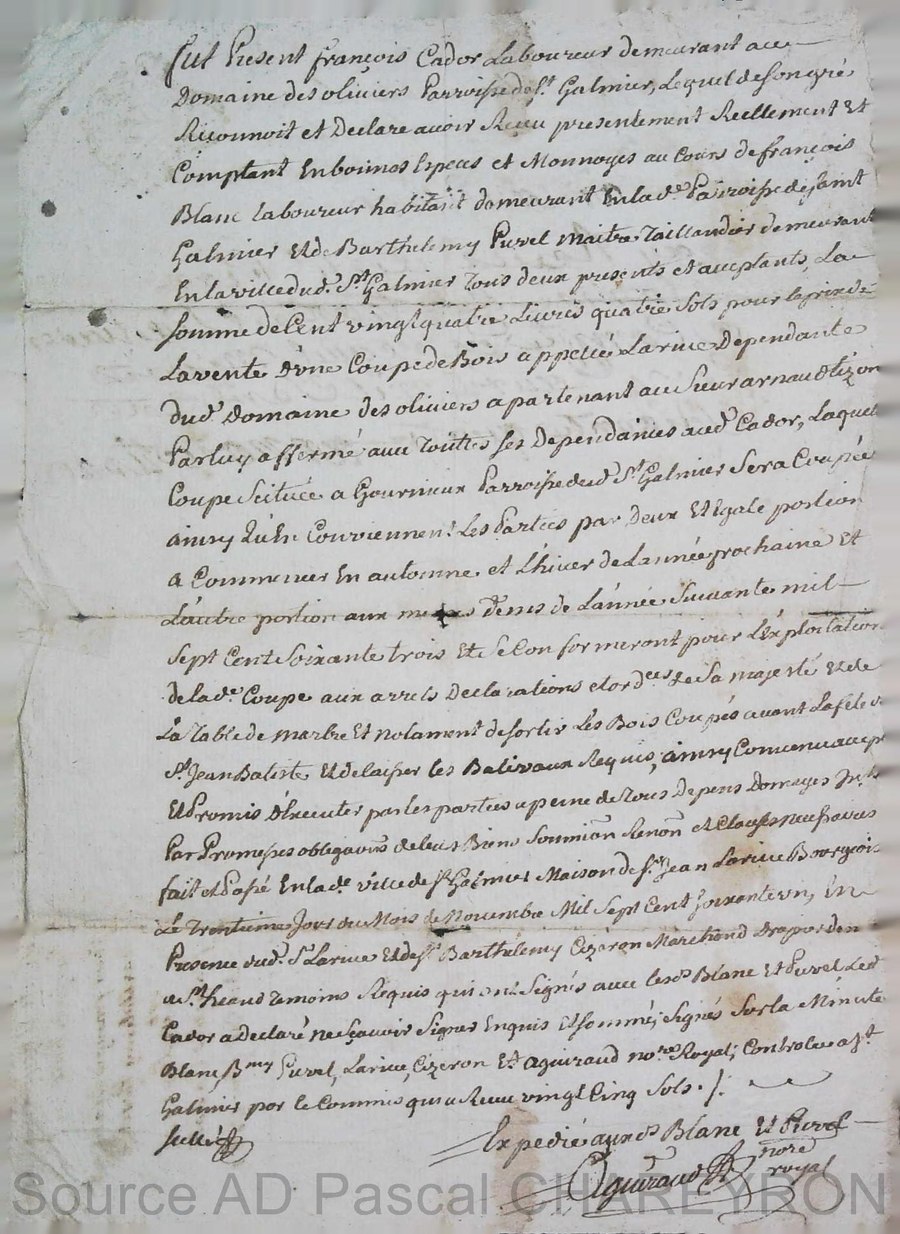 fut Présent françois Cador Laboureur demeurant au
Domaine des oliviers Parroisse de St. Galmier, Lequel de son gré
Reconnoit et Declare avoir Receu presentement Reellement Et
Comptant En bonnes Especes et Monnoyes au Cours de françois
Blanc laboureur habitant demeurant En lade. Parroisse de saint
Galmier Et de Barthelemy Purel Maitre Taillandier demeurant
En la ville dud. St. Galmier Tous deux presents et acceptants, La
Somme de Cent vingt quatre Livres quatre Sols pour le prix de
La vente D'une Coupe de Bois appellée Larive Dependante
dud. Domaine des oliviers apartenant au Sieur arnaud tizon
Par luy affermé avec Toutes ses Dependances aud. Cador, Laquelle
Coupe Scituée a Gournieux Parroisse dud. St. Galmier Sera Coupée
ainsy qu'En Conviennent Les Parties par Deux Et Egale portion
a Commencer En automne et L'hiver de L'année prochaine Et
L'autre portion aux mêmes Tems de L'année Suivante mil
Sept Cent Soixante trois Et se Conformeront pour L'Exploitation
de lade. Coupe aux arrets Declarations et ordces. de Sa majesté Et de
La Table de marbre Et notament de sortir Les Bois Coupés avant La fete de
St. Jean Batiste Et de laisser les Balivaux Requis, ainsy Convenu accepté
Et Promis D'Executer par les parties a peine de Tous Depens Domages Ints.
Par Promesses obligaons. de leurs Biens Soumisn. Renonn. Et Clauses necessaires
fait et Passé En lade. ville de St. Galmier Maison de Sr. Jean Larive Bourgeois
Le Trentieme Jour du Mois de Novembre Mil Sept Cent Soixante un, En
Presence dud. Sr. Larive Et de Sr. Barthelemy Cizeron Marchand Drapier de
a St. heand Temoins Requis qui ont Signés avec lesd. Blanc Et Purel Led.
Cador a Declaré ne Sçavoir Signer Enquis Et sommé; Signés Sur la Minute
Blanc, Bmy Purel, Larive, Cizeron Et aguiraud nore. Royal; Controlée a St.
Galmier par le Commis qui a Receu vingt Cinq Sols. /.
Scellé
Expedié auxds. Blanc Et Purel
Aguiraud nore royal
Source AD Pascal CHAREYRON